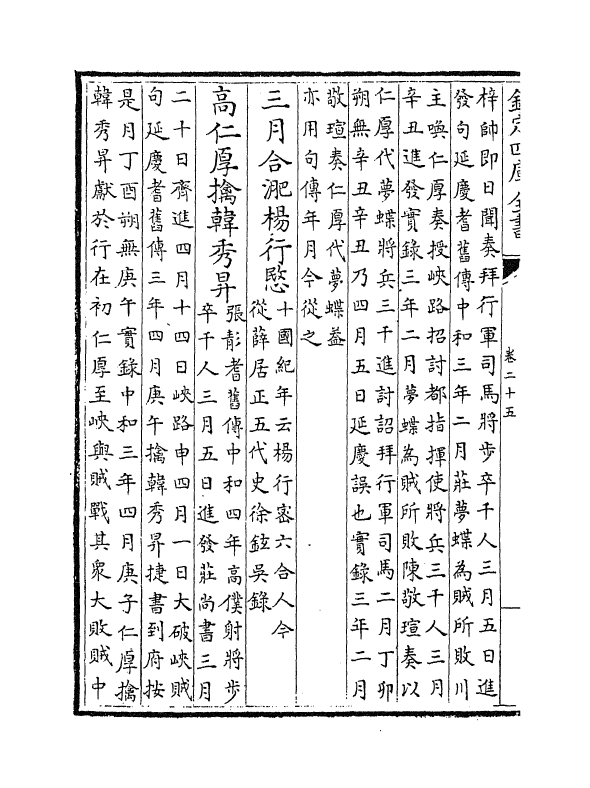 欽定四庫全書
卷二十五
梓帥即日聞奏拜行軍司馬將步卒千人三月五日進
發句延慶耆舊傳中和三年二月莊夢蝶為賊所敗川
主喚仁厚奏授峽路招討都指揮使將兵三千人三月
辛丑進發實錄三年二月夢蝶為賊所敗陳敬瑄奏以
仁厚代夢蝶將兵三千進討詔拜行軍司馬二月丁卯
朔無辛丑辛丑乃四月五日延慶誤也實錄三年二月
敬瑄奏仁厚代夢蝶蓋
亦用句傳年月今從之
三月合淝楊行愍
十國紀年云楊行密六合人今
從薛居正五代史徐鉉吳錄
高仁厚擒韓秀昇
張彭耆舊傳中和四年高僕射將步
卒千人三月五日進發莊尚書三月
二十日齊進四月十四日峽路申四月一日大破峽賊
句延慶耆舊傳三年四月庚午擒韓秀昇捷書到府按
是月丁酉朔無庚午實錄中和三年四月庚子仁厚擒
韓秀昇獻於行在初仁厚至峽與賊戰其衆大敗賊中